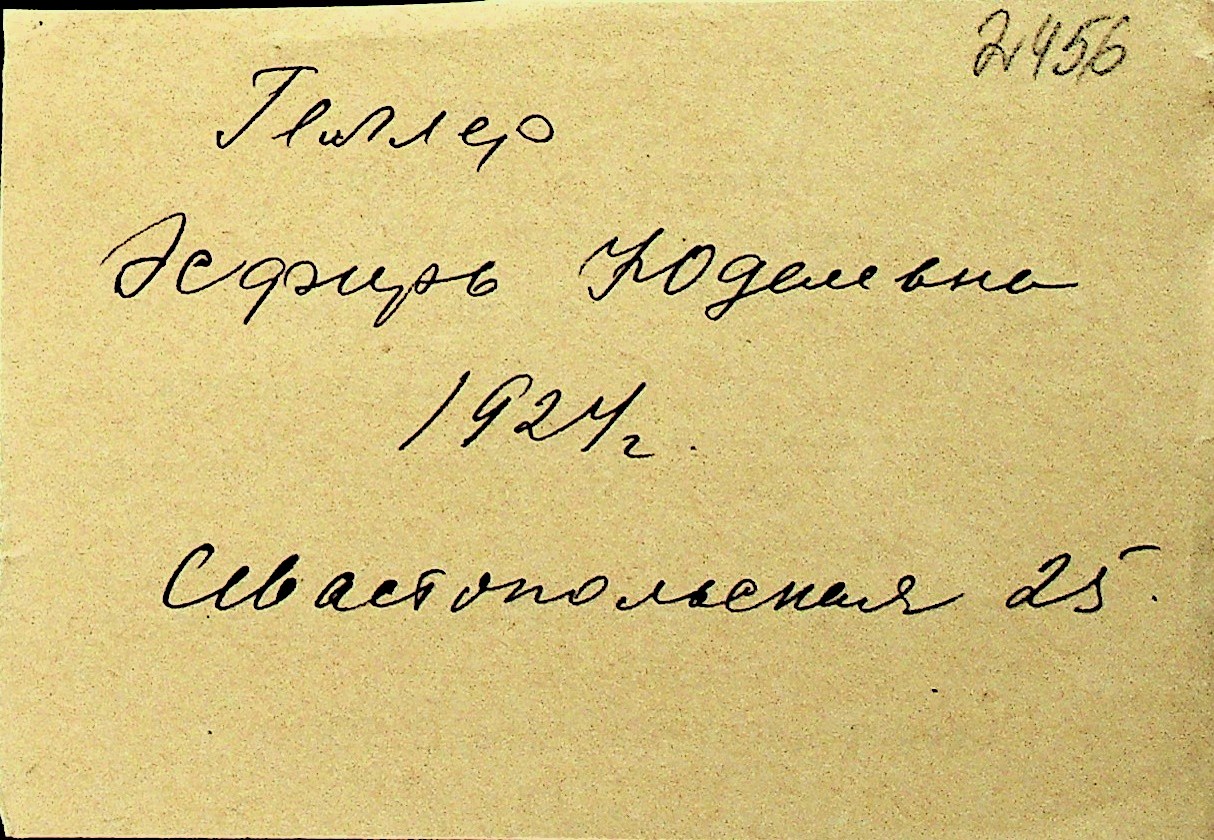 2456
Геллер
Эсфирь Юделевна
1924г.
Севастопольская 25.